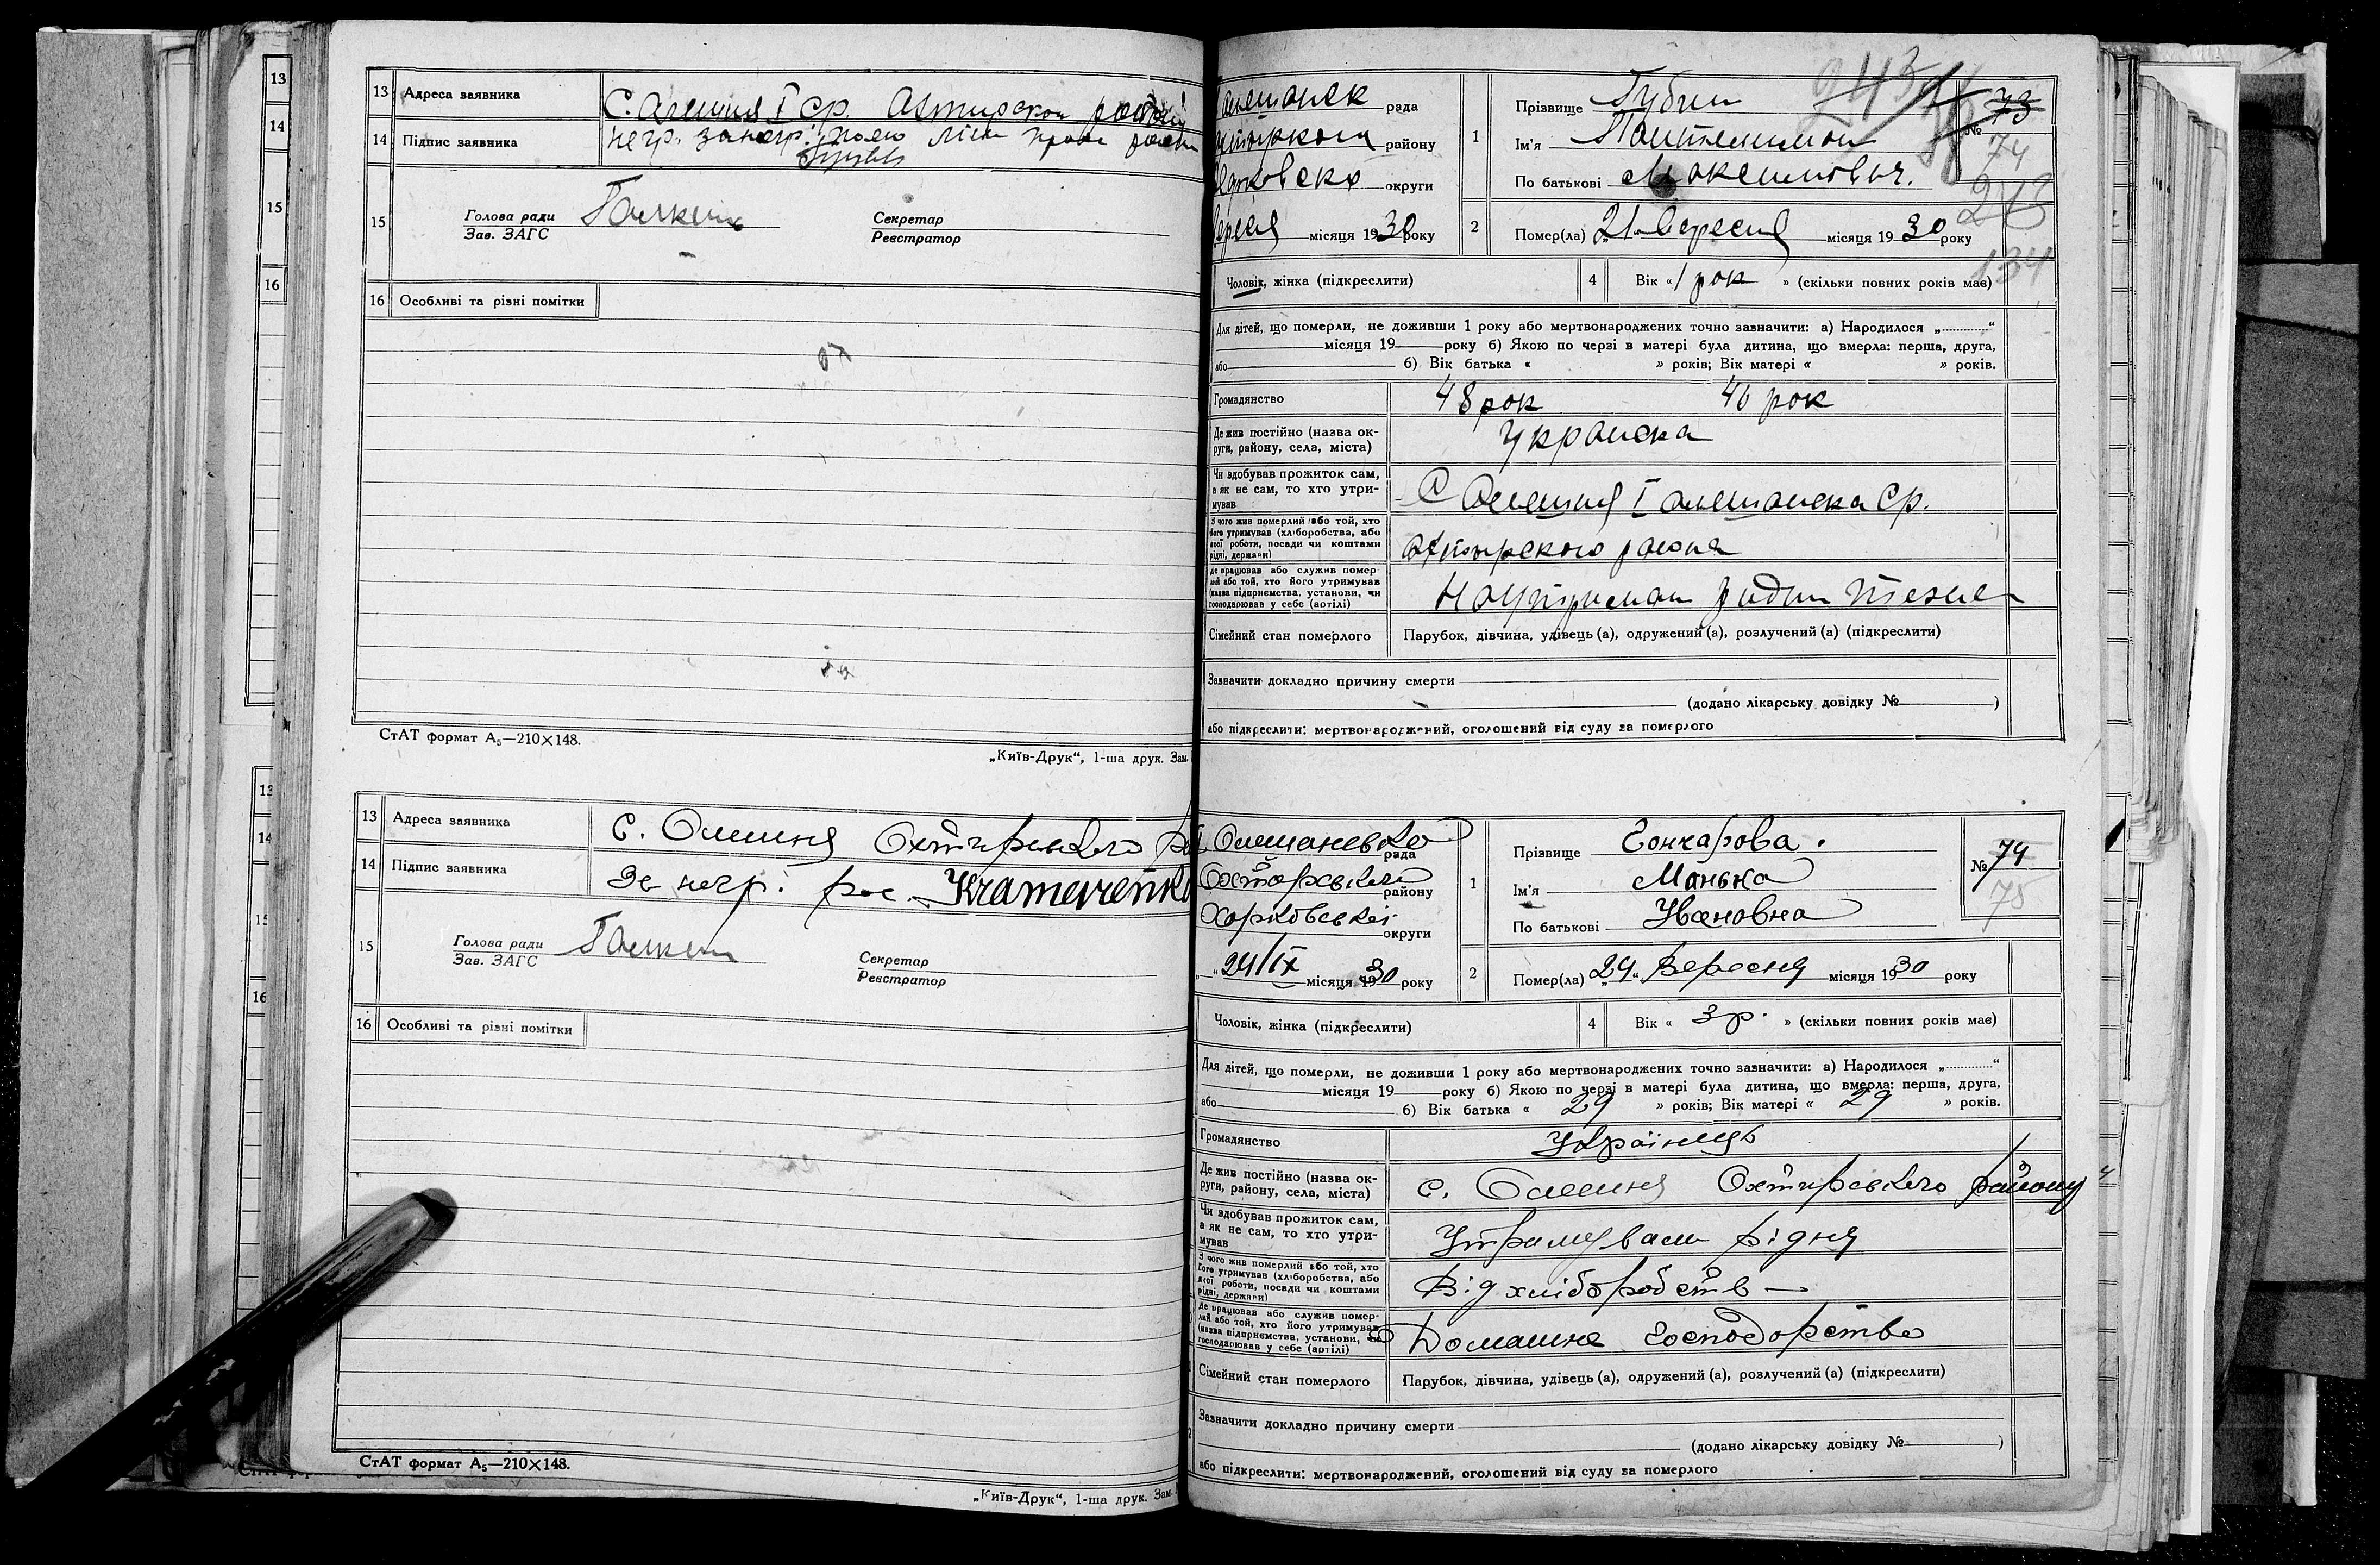 13 Адреса заявника С. Алешня I ср. Ахтирскои
14 Підпис заявника негр.
15 Голова ради Галкин Секретар
Зав. ЗАГС Реєстратор
16 Особливі та різні помітки
СтАТ формат А₅—210×148.
„Київ-Друк“, 1-ша друк. Зам.
13 Адреса заявника с. Олешня Охтирського
14 Підпис заявника За негр. рос. Kramerenko
15 Голова ради Галкин Секретар
Зав. ЗАГС Реєстратор
16 Особливі та різні помітки
СтАТ формат А₅—210×148.
„Київ-Друк“, 1-ша друк. Зам.
13
14
15
16
13
14
15
16
рада
району
округи
місяця 1930 року
1 Прізвище Губин
Ім'я Пантелимон
По батькові Максимович.
№ 73
74
273
134
2 Помер(ла) „21 вересня місяця 1930 року
Чоловік, жінка (підкреслити) 4 Вік « 1 рок » (скільки повних років має)
Для дітей, що померли, не доживши 1 року або мертвонароджених точно зазначити: а) Народилося „............“
місяця 19 року б) Якою по черзі в матері була дитина, що вмерла: перша, друга,
або б) Вік батька « » років; Вік матері « » років.
Громадянство 48 рок 40 рок
Де жив постійно (назва ок-
руги, району, села, міста) Украиска
Чи здобував прожиток сам,
а як не сам, то хто утри-
мував С Алешня I алешанска ср.
З чого жив померлий або той, хто
його утримував (хліборобства, або
якої роботи, посади чи коштами
рідні, держави) ахтирского раена
Де працював або служив помер-
лий або той, хто його утримував
(назва підприємства, установи, чи
господарював у себе (артілі)
Сімейний стан померлого Парубок, дівчина, удівець (а), одружений (а), розлучений (а) (підкреслити)
Зазначити докладно причину смерти
(додано лікарську довідку № )
або підкреслити: мертвонароджений, оголошений від суду за померлого
Олешанська рада
Охтирського району
Харківської округи
„ “ 24/IX місяця 1930 року
1 Прізвище Гончарова.
Ім'я Манька
По батькові Увановна
№ 74
75
2 Помер(ла) „24“ Вересня місяця 1930 року
Чоловік, жінка (підкреслити) 4 Вік « 3 р. » (скільки повних років має)
Для дітей, що померли, не доживши 1 року або мертвонароджених точно зазначити: а) Народилося „............“
місяця 19 року б) Якою по черзі в матері була дитина, що вмерла: перша, друга,
або б) Вік батька « 29 » років; Вік матері « 29 » років.
Громадянство Українець
Де жив постійно (назва ок-
руги, району, села, міста) с. Олешня Охтирського району
Чи здобував прожиток сам,
а як не сам, то хто утри-
мував Утримували рідня
З чого жив померлий або той, хто
його утримував (хліборобства, або
якої роботи, посади чи коштами
рідні, держави) Від хліборобств —
Де працював або служив помер-
лий або той, хто його утримував
(назва підприємства, установи, чи
господарював у себе (артілі) Домашне Господарство
Сімейний стан померлого Парубок, дівчина, удівець (а), одружений (а), розлучений (а) (підкреслити)
Зазначити докладно причину смерти
(додано лікарську довідку № )
або підкреслити: мертвонароджений, оголошений від суду за померлого